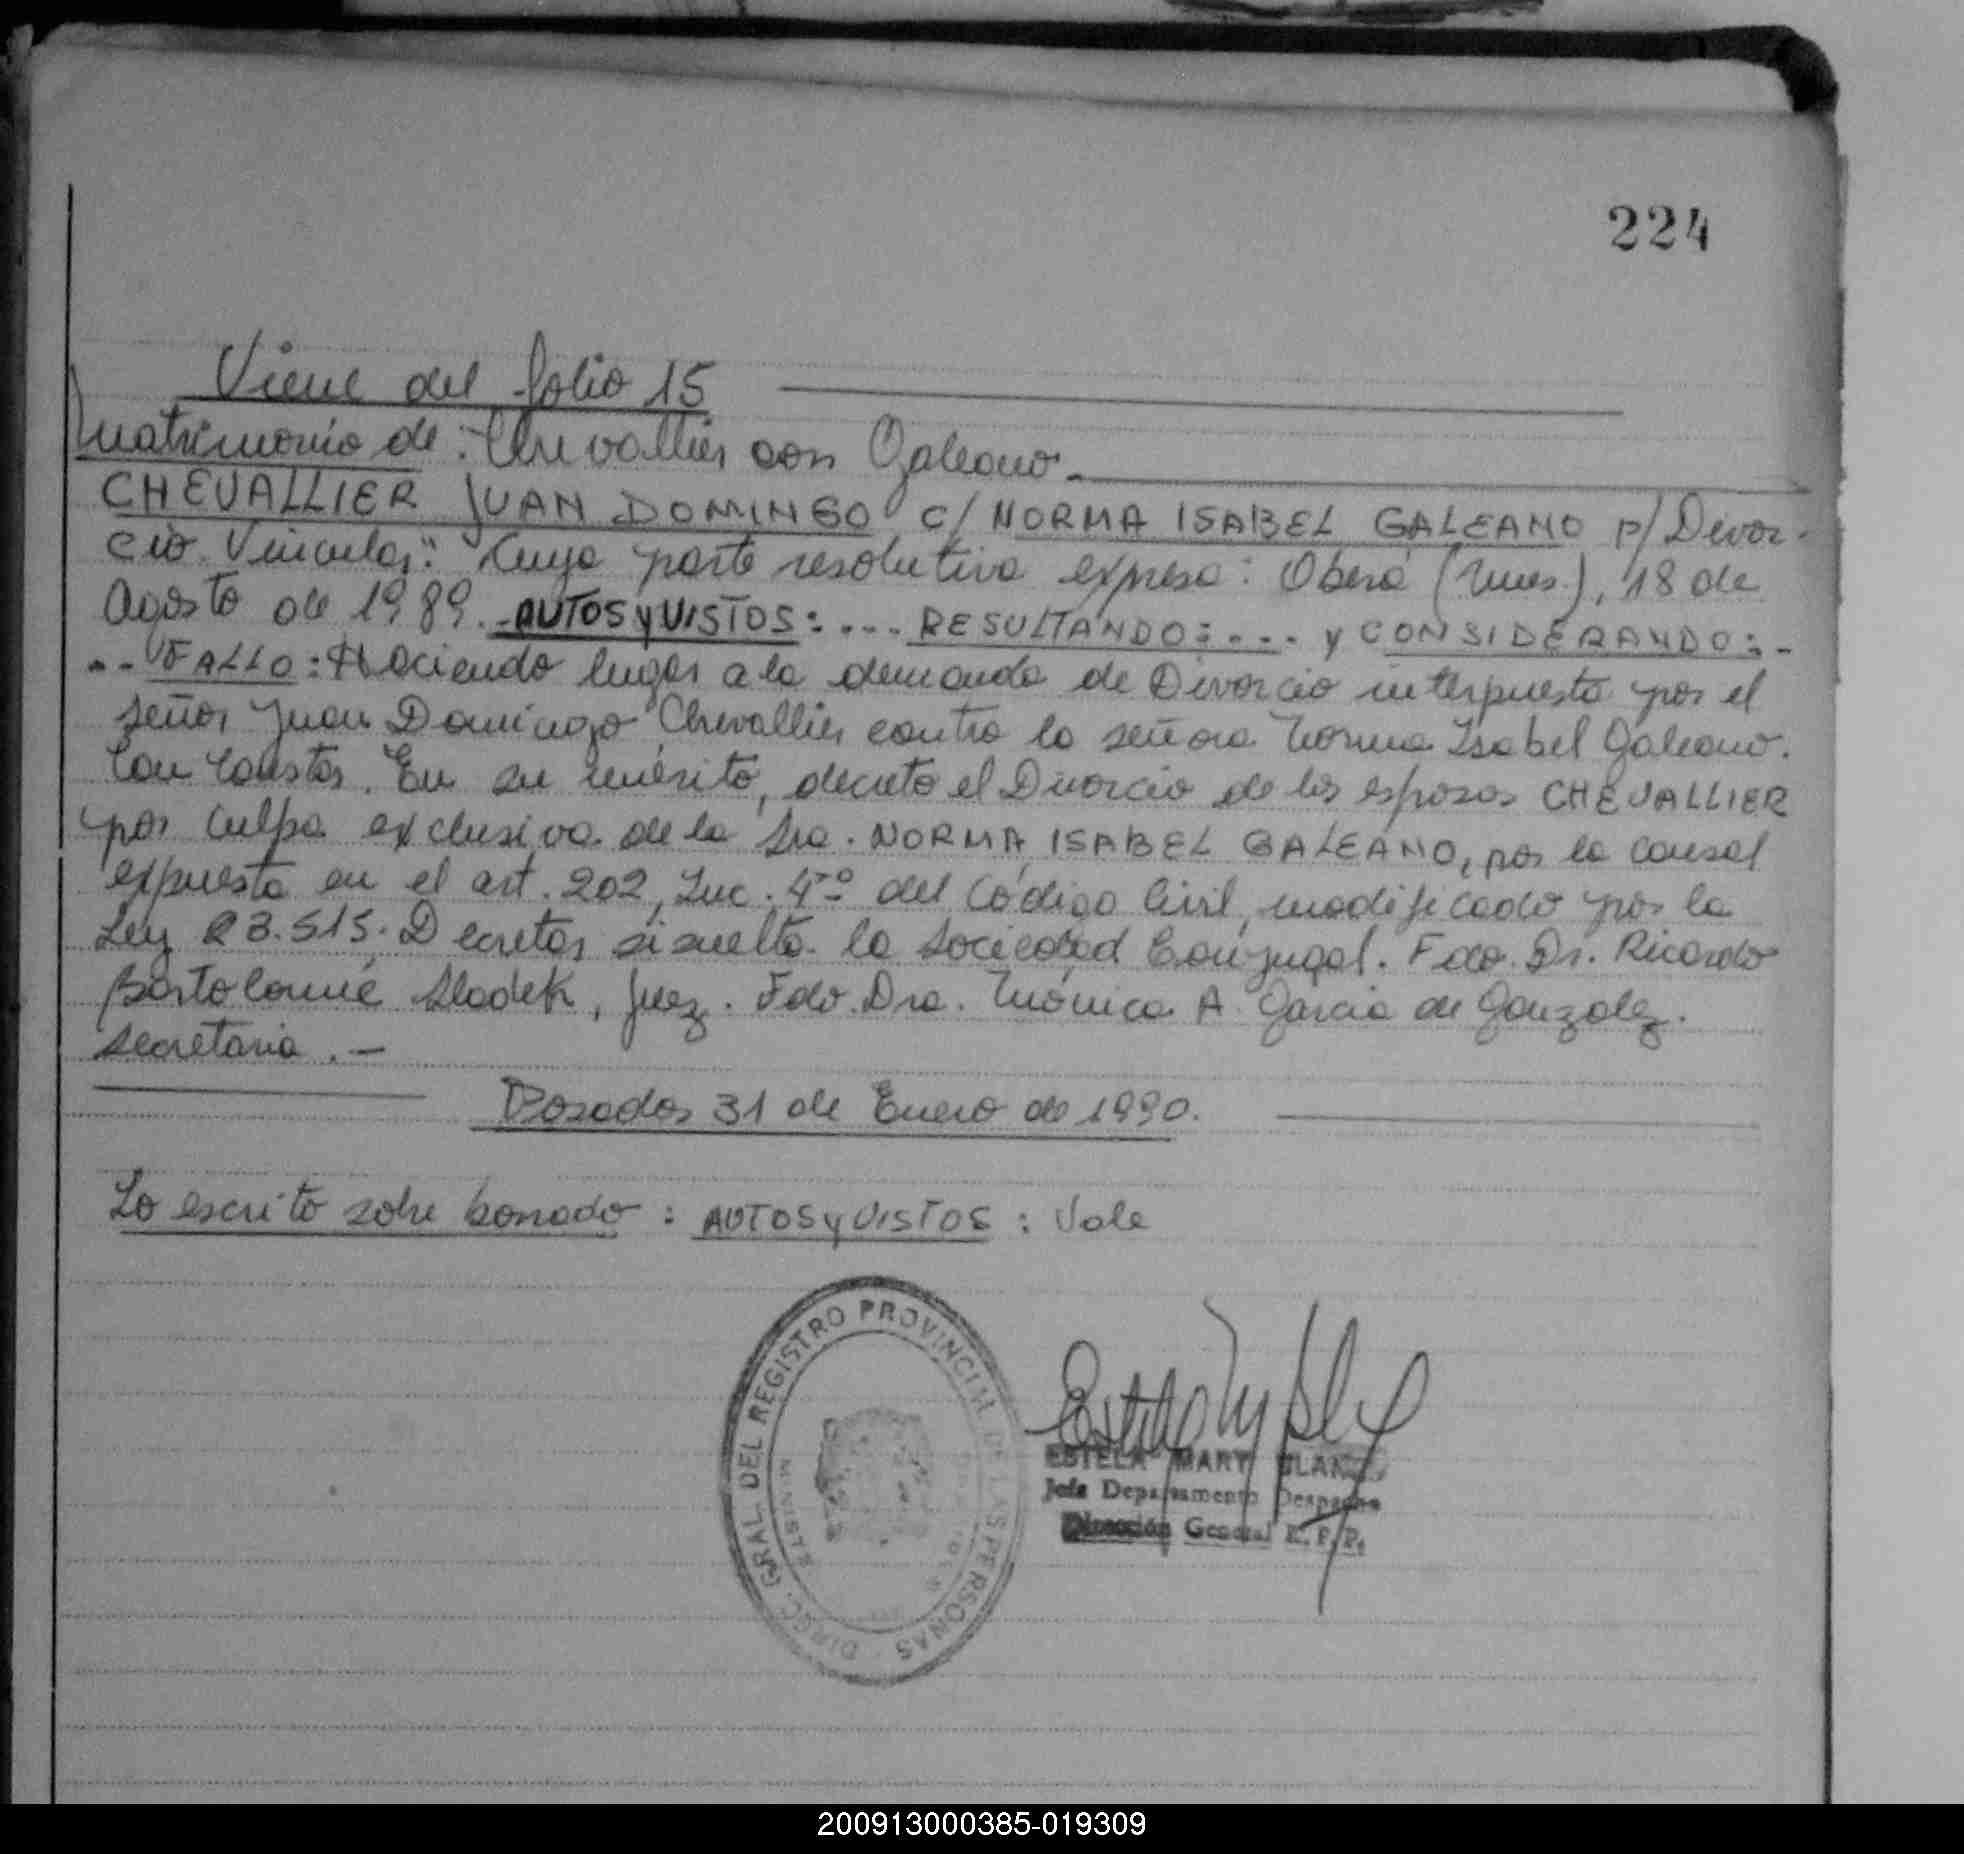 224
Viene del folio 15
Matrimonio de: Chevallier con Galeano.
CHEVALLIER JUAN DOMINGO c/ NORMA ISABEL GALEANO p/ Divor-
cio Vincular." Cuya parte resolutiva expresa: Oberá (Mnes.), 18 de
Agosto de 1989.- AUTOS y VISTOS:... RESULTANDO:... y CONSIDERANDO:-
..- FALLO: Haciendo lugar a la demanda de Divorcio interpuesta por el
señor Juan Domingo Chevallier contra la señora Norma Isabel Galeano.
Con Costas. En su mérito, decreto el Divorcio de los esposos CHEVALLIER
por culpa exclusiva de la Sra. NORMA ISABEL GALEANO, por la causal
expuesta en el art. 202, Inc. 4to del Código Civil, modificado por la
Ley 23.515. Decretar disuelta la Sociedad Conyugal. Fdo. Dr. Ricardo
Bartolomé Sladek, Juez. Fdo. Dra. Mónica A. Garcia de Gonzalez.
Secretaria.-
Posadas 31 de Enero de 1990.
Lo escrito sobre borrado: AUTOS y VISTOS: Vale
DIREC. GRAL. DEL REGISTRO PROVINCIAL DE LAS PERSONAS
ESTELA MARY BLANC
Jefa Departamento Despacho
Dirección General R. P. P.
200913000385-019309